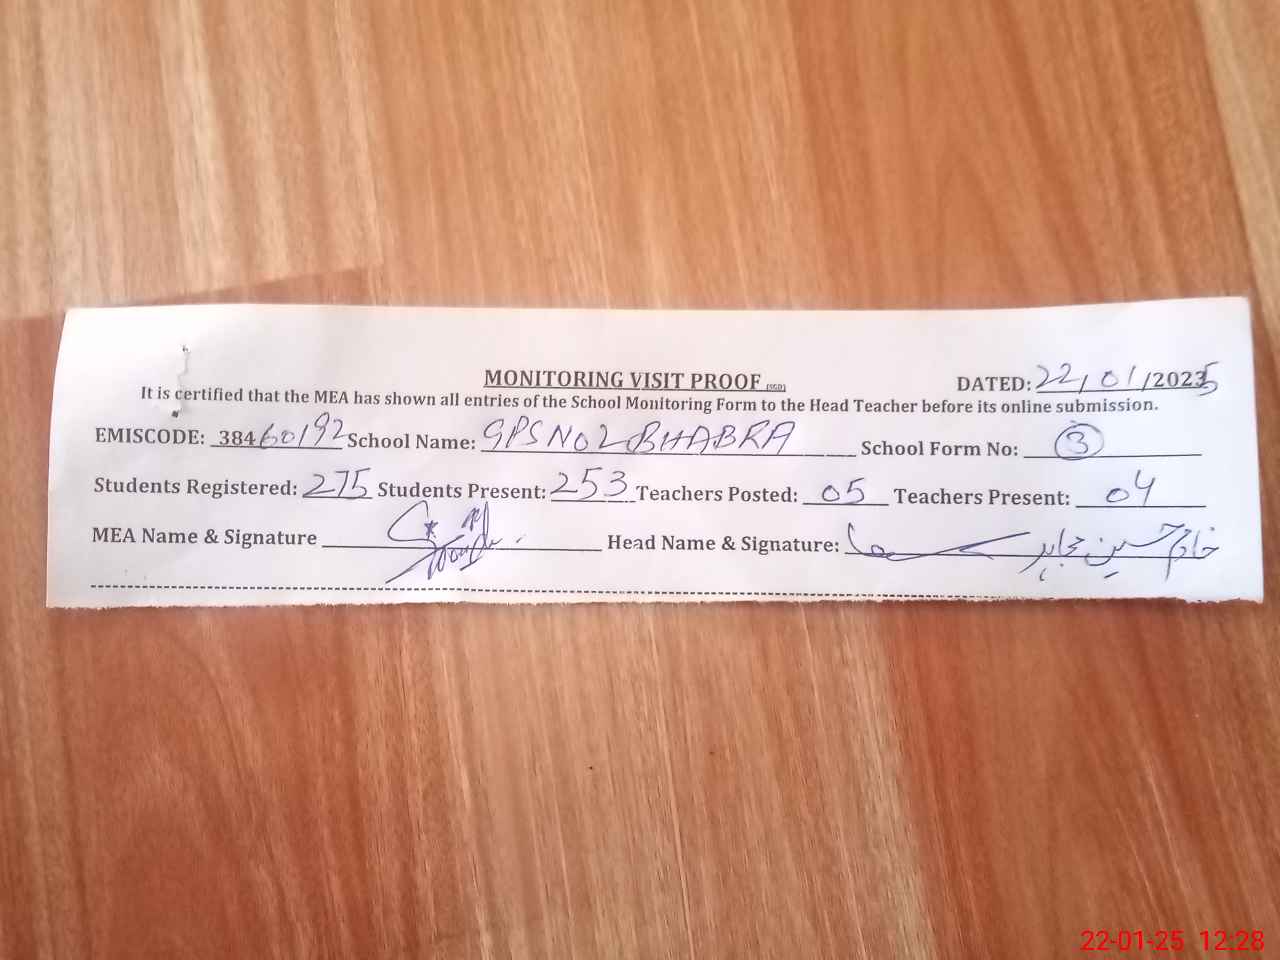 MONITORING VISIT PROOF (SGD) DATED: 22/01/2025
It is certified that the MEA has shown all entries of the School Monitoring Form to the Head Teacher before its online submission.
EMISCODE: 38460192 School Name: GPS No 2 BHABRA School Form No: 3
Students Registered: 275 Students Present: 253 Teachers Posted: 05 Teachers Present: 04
MEA Name & Signature Head Name & Signature: خادم حسین مجاہد
22-01-25 12:28